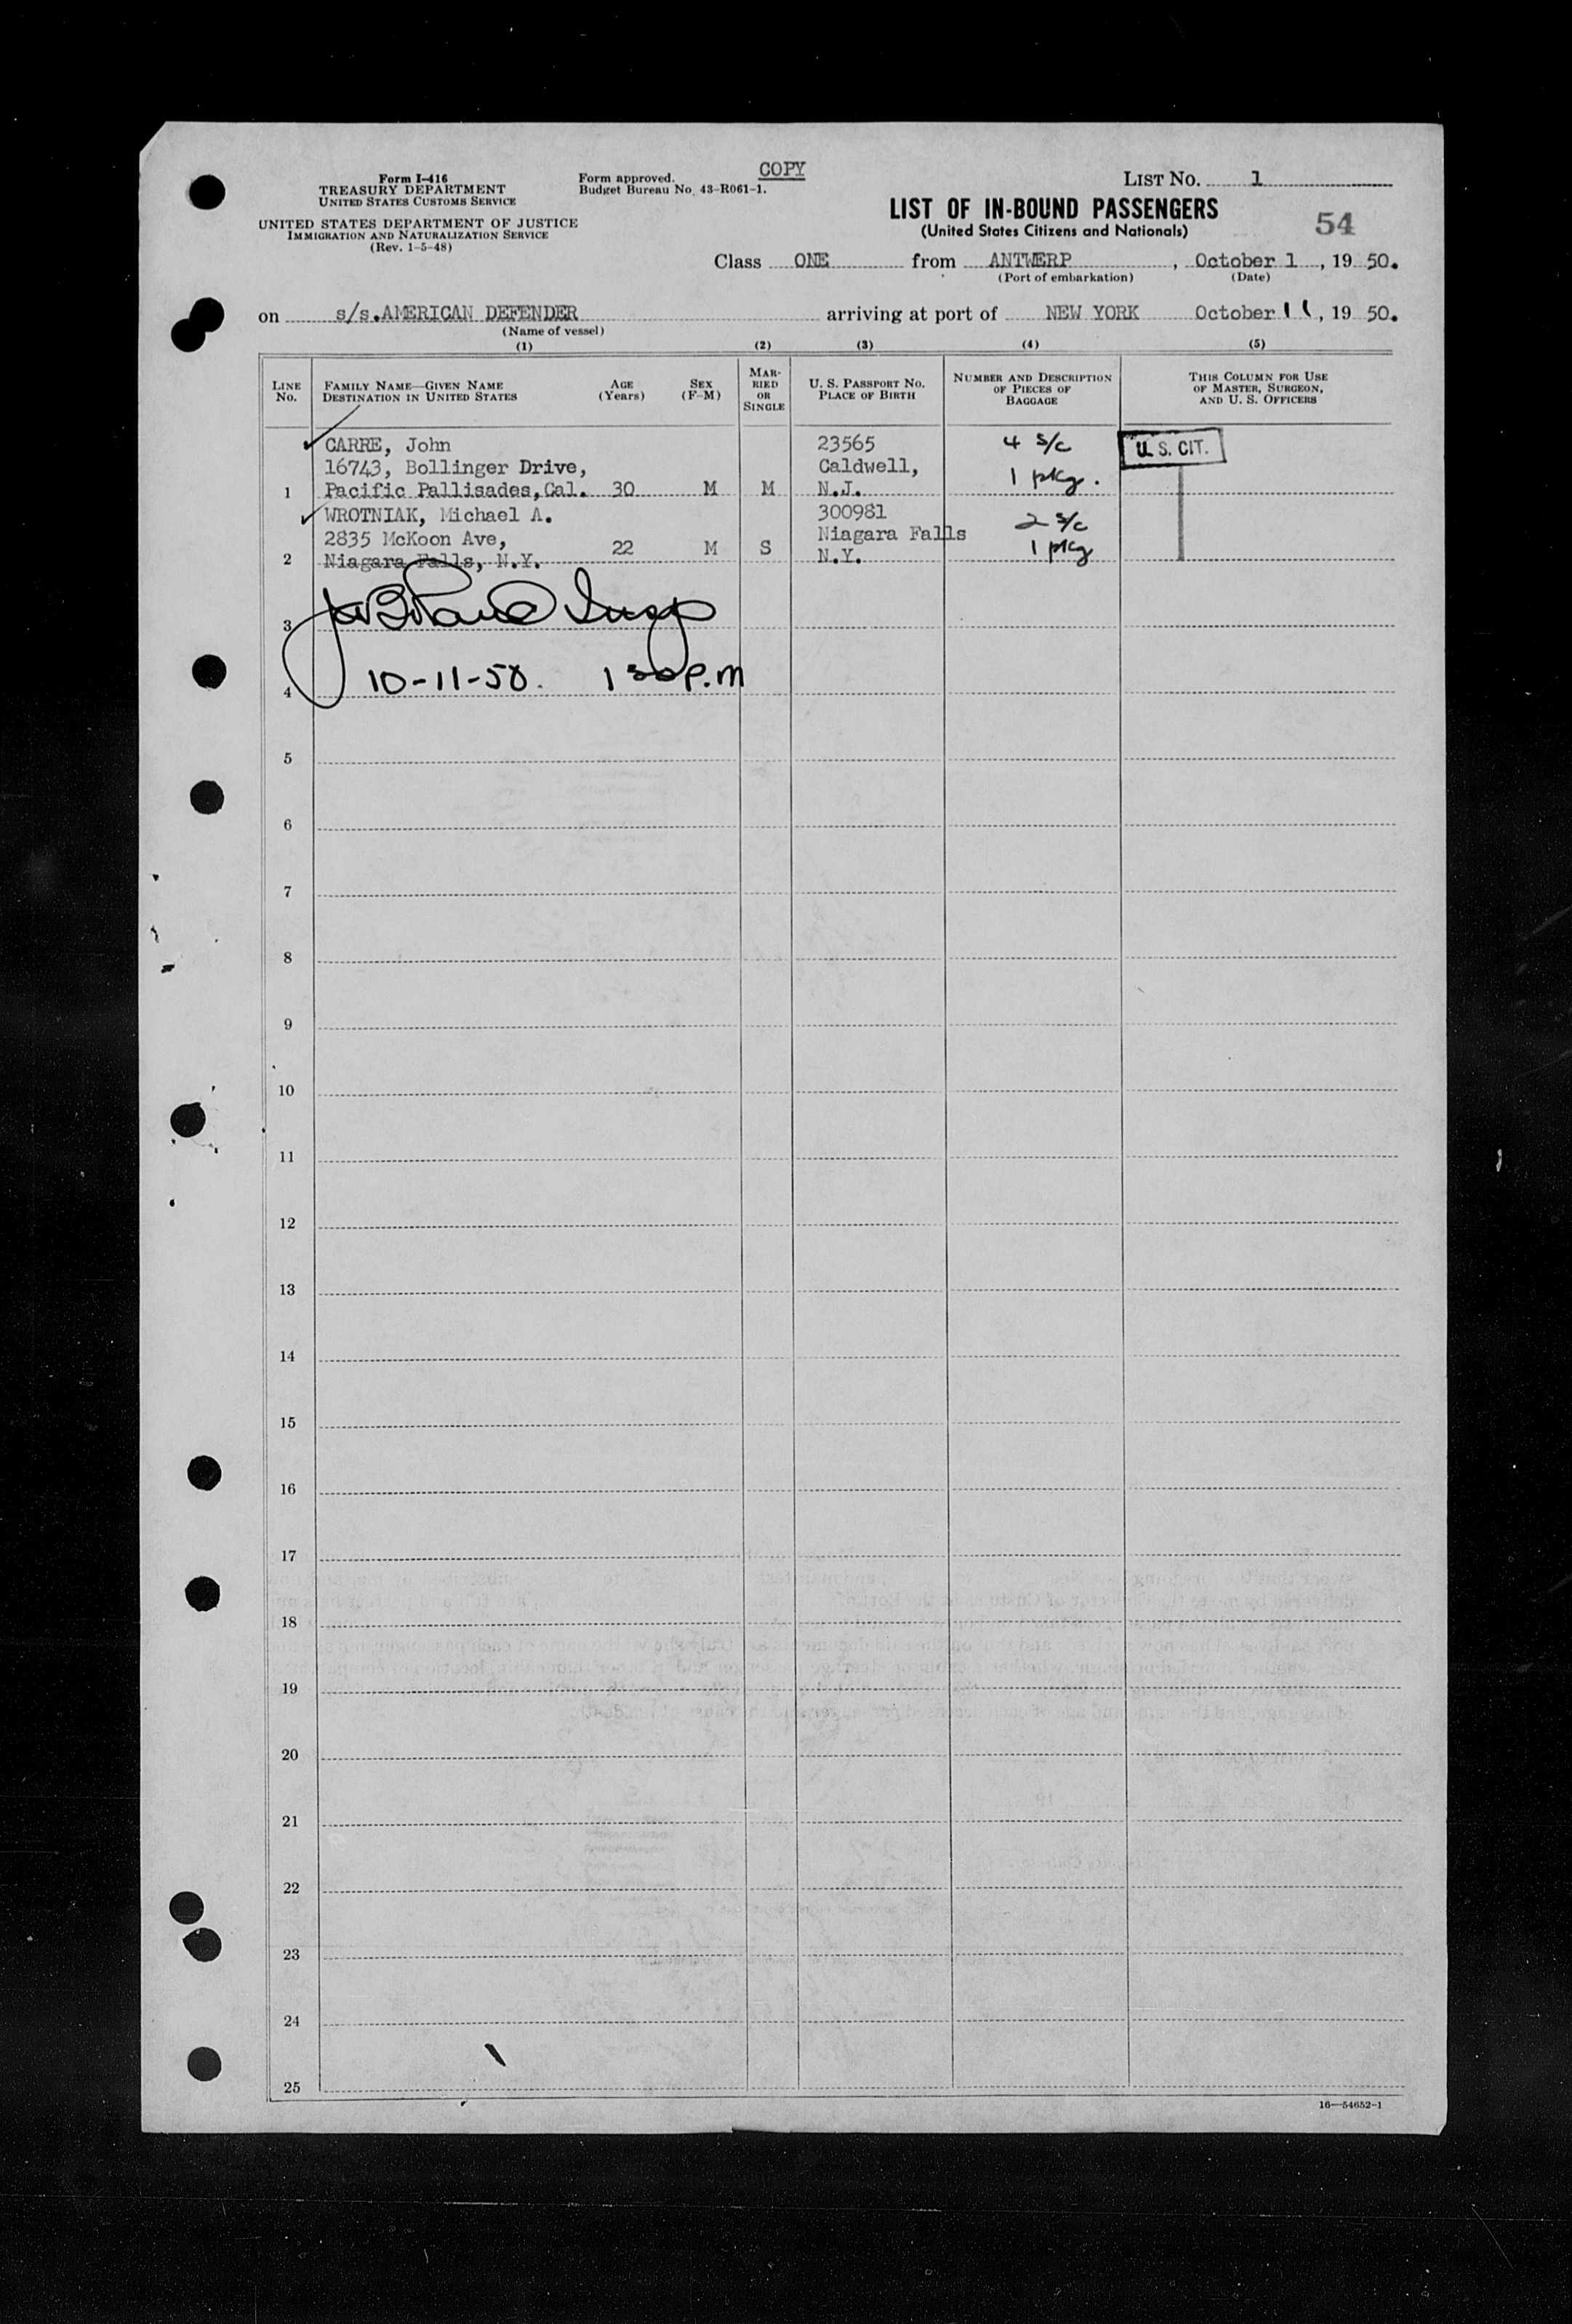 COPY
Form I-416
TREASURY DEPARTMENT
UNITED STATES CUSTOMS SERVICE
Form approved.
Budget Bureau No. 43-R061-1.
LIST NO. 1
UNITED STATES DEPARTMENT OF JUSTICE
IMMIGRATION AND NATURALIZATION SERVICE
(Rev. 1-5-48)
LIST OF IN-BOUND PASSENGERS
(United States Citizens and Nationals)
54
Class ONE from ANTWERP, October 1, 19 50.
(Port of embarkation) (Date)
on s/s.AMERICAN DEFENDER arriving at port of NEW YORK October 11, 19 50.
(Name of vessel)
(1) (2) (3) (4) (5)
LINE No.
FAMILY NAME—GIVEN NAME
DESTINATION IN UNITED STATES
AGE (Years)
SEX (F-M)
MARRIED OR SINGLE
U. S. PASSPORT NO.
PLACE OF BIRTH
NUMBER AND DESCRIPTION OF PIECES OF BAGGAGE
THIS COLUMN FOR USE OF MASTER, SURGEON, AND U. S. OFFICERS
CARRE, John 23565 4 s/c U.S. CIT.
16743, Bollinger Drive, Caldwell, 1 pkg.
1 Pacific Pallisades,Cal. 30 M M N.J.
WROTNIAK, Michael A. 300981 2 s/c
2835 McKoon Ave, 22 M S Niagara Falls 1 pkg
2 Niagara Falls, N.Y. N.Y.
3
4 10-11-50. 1 30 P.M
5
6
7
8
9
10
11
12
13
14
15
16
17
18
19
20
21
22
23
24
25
16—54652-1